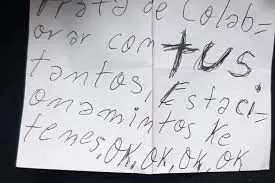 Trata de Colab=
orar con tus
tantos, Estaci=
onamintos, Ke
tenes, OK, OK, OK, OK